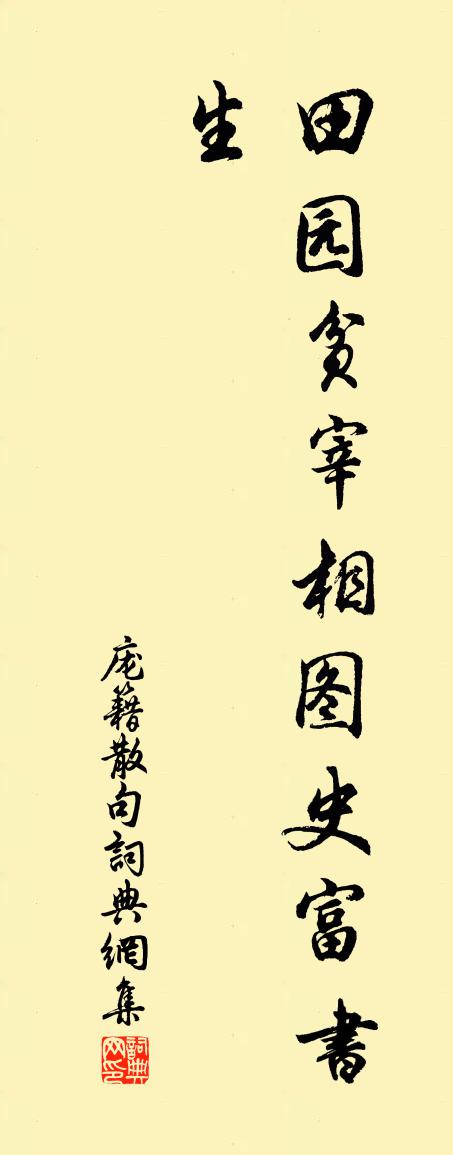 田园贫宰相图史富書
生
庞籍散句詞典網集
詞典
网印